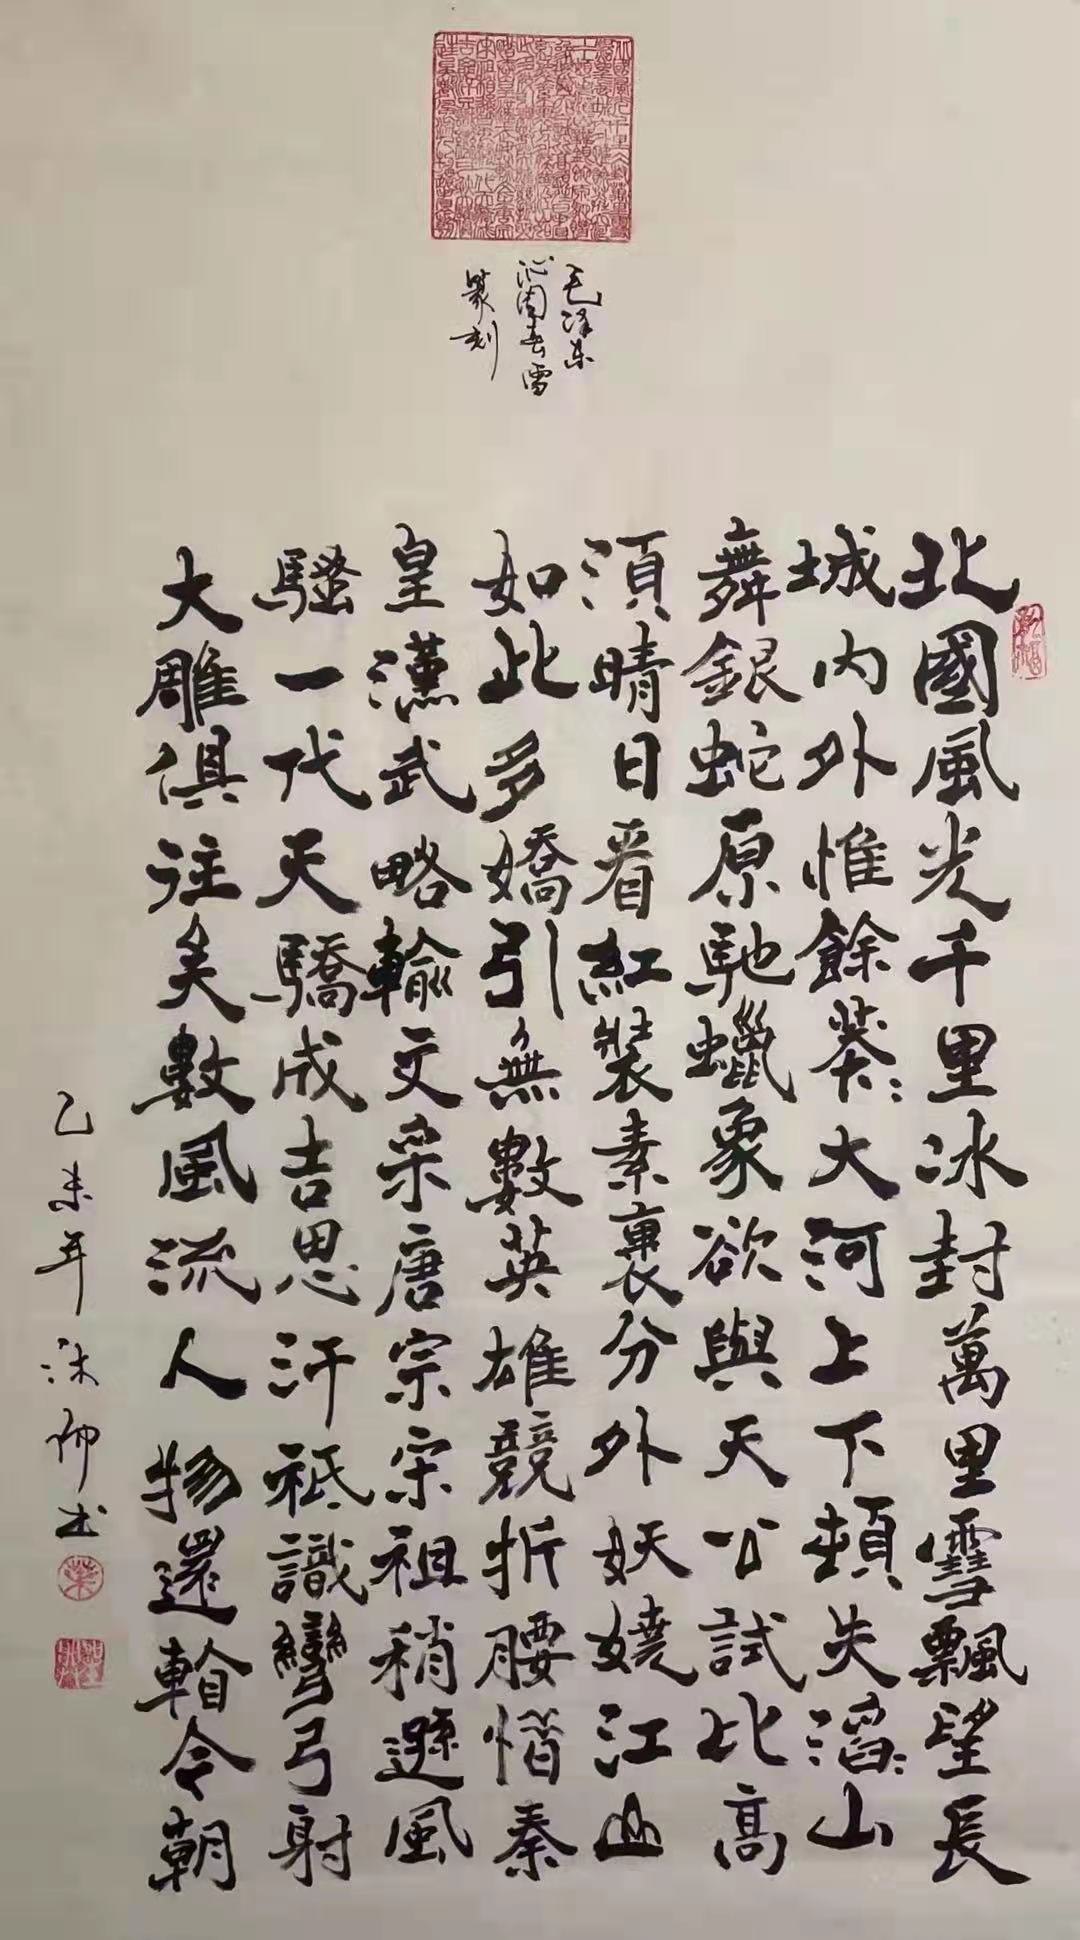 毛泽东
沁园春雪
篆刻
北國風光千里冰封萬里雪飄望長
城內外惟餘莽:大河上下頓失滔:山
舞銀蛇原馳蠟象欲與天公試比高
須晴日看紅裝素裹分外妖嬈江山
如此多嬌引無數英雄競折腰惜秦
皇漢武略輸文采唐宗宋祖稍遜風
騷一代天驕成吉思汗祇識彎弓射
大雕俱往矣數風流人物還今朝
乙未年沐帅书